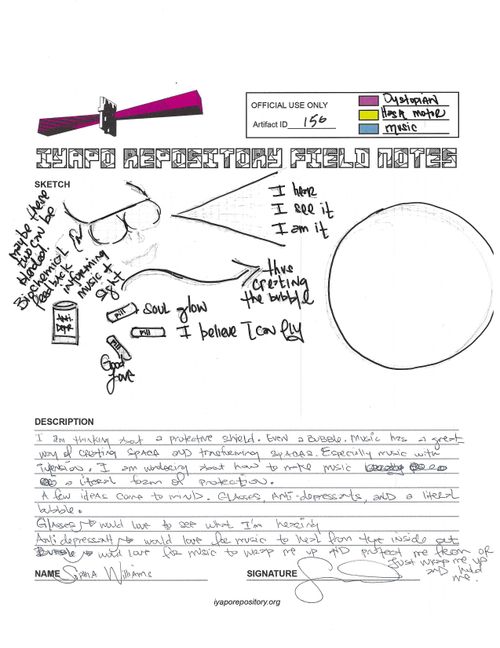 OFFICIAL USE ONLY
Artifact ID 156
Dystopian
Music
IYAPO REPOSITORY FIELD NOTES
SKETCH
maybe these
two can be
blended.
Biochemical
feedback
informing
music +
sight
I hear
I see it
I am it
thus
creating
the bubble
Anti
DEPR
pill
soul glow
pill
I believe I can fly
pill
Good
Love
DESCRIPTION
I am thinking about a protective shield. Even a Bubble. Music has a great
way of creating space and transforming spaces. Especially music with
intension. I am wondering about how to make music
a literal form of protection.
A few ideas come to mind. Glasses, Anti-depressants, and a literal
bubble.
Glasses → would love to see what I'm hearing
Anti depressant → would love for music to heal from the inside out
Bubble → would love for music to wrap me up and protect me from or
Just wrap me up
and hold
me.
NAME Williams
SIGNATURE
iyaporepository.org